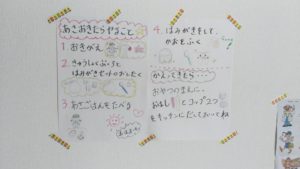 あさおきたらやること
1 おきがえ
2 きゅうしょくぶくろと
はみがきセットのしたく
3 あさごはんをたべる
4. はみがきをして、
かおをふく
かえってきたら・・・
おやつのまえに、
おはし とコップ2つ
をキッチンにだしておいてね